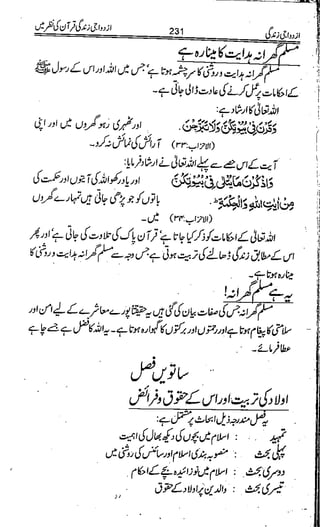 ازدواجی زندگی 231 ازدواجی زندگی قرآن کی نظر میں
مسلم گھرانہ ہدایت کا مینارہ ہے
مسلم گھرانہ ہدایت و روشنی کا سرچشمہ ہوتا ہے، جس میں اللہ اور اس کے رسول ﷺ
کے احکامات پر عمل کرنے کی عادت ڈالی جاتی ہے۔
اللہ تعالیٰ کا ارشاد ہے:
وَقَرْنَ فِیْ بُیُوْتِکُنَّ وَلَا تَبَرَّجْنَ. اور ٹھہری رہو گھروں میں اور اپنی
(الاحزاب:۳۳) آرائش کی نمائش نہ کرو۔
آیت کے اس حصے سے پہلے اللہ تعالیٰ نے ارشاد فرمایا:
وَاذْکُرْنَ مَا یُتْلٰی فِیْ بُیُوْتِکُنَّ اور یاد رکھو اللہ کی آیتوں اور حکمت کی
مِنْ اٰیٰتِ اللّٰہِ وَالْحِکْمَۃِ باتوں کو جو پڑھی جاتی ہیں تمہارے گھروں
(الاحزاب:۳۴) میں۔
اللہ تعالیٰ کے احکامات کو ذکر کیا جاتا ہے، قرآن پاک کی تلاوت کی جاتی ہے اور پھر
اس کے مطابق زندگی ڈھالنے کی تربیت ہوتی ہے جس وجہ سے مسلم گھرانہ ہدایت و روشنی کا
مینارہ ہوتا ہے۔
یہ ہے مسلم گھرانہ!
مسلم گھرانہ جس کی صفات بیان کی گئی ہیں یہ حقیقتاً پورے معاشرے کے لیے امن اور
سلامتی کا پیغام ہوتا ہے اور رحمتوں اور برکتوں کا گہوارہ ہوتا ہے۔ یہ اللہ کا فضل ہے جسے چاہے
عطا فرمائے۔
ساتویں فصل
اولاد کی تربیت اور اس کے حقوق و فرائض
یہ فصل مندرجہ ذیل ابحاث پر مشتمل ہے:
تمہید : اسلام میں بچوں کی دیکھ بھال کی اہمیت
پہلی بحث : منصوبہ بندی اسلام اور سائنس کی روشنی میں
دوسری بحث : اسلام میں نوزائیدہ بچے کے احکام
تیسری بحث : والدین پر اولاد کے حقوق